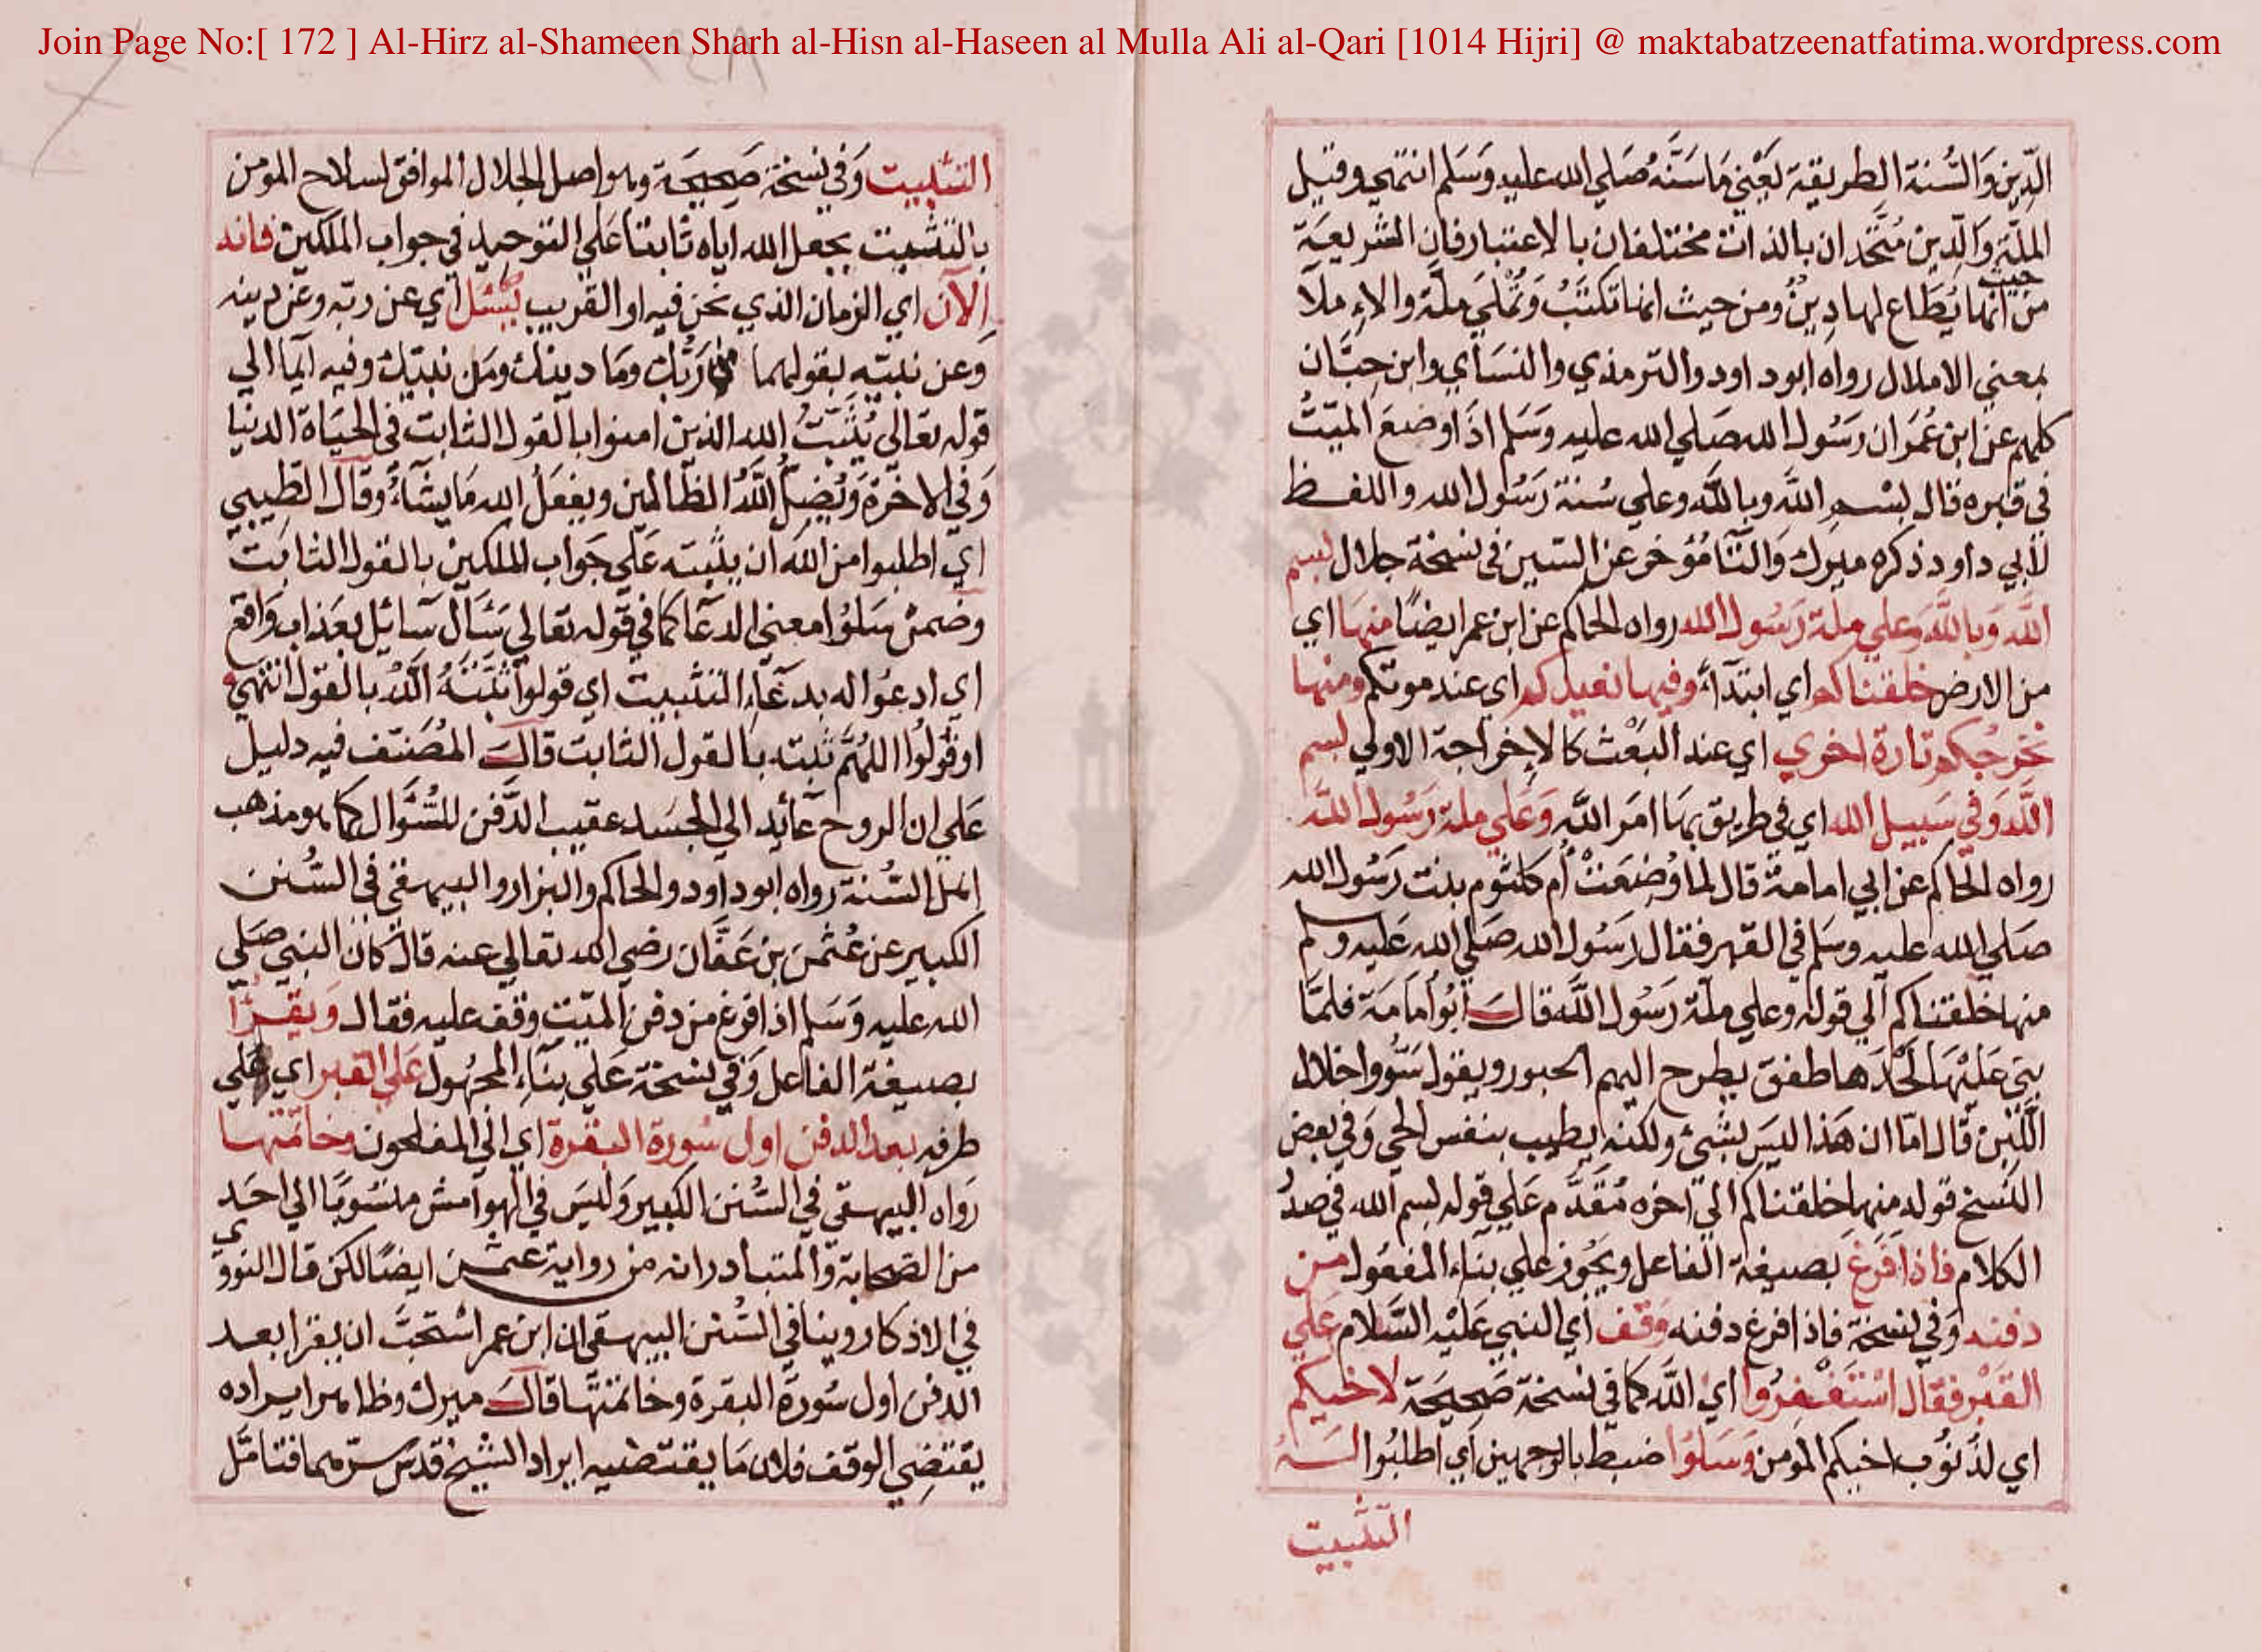 Join Page No:[ 172 ] Al-Hirz al-Shameen Sharh al-Hisn al-Haseen al Mulla Ali al-Qari [1014 Hijri] @ maktabatzeenatfatima.wordpress.com
الدِّين وَالسُّنة الطريقة يَعْني مَا سَنَّهُ صَلي الله عليه وَسَلم انتهي وقيل
الملّة وَالدِّين مُتَّحدان بالذات مختلفان بالاعتبار فان الشريعَة
من حيث انها يُطَاع لها دِينٌ ومن حيث انها تكتَبُ وَتُمْلَي ملّة والاملاء
بمعني الاملال رواه ابوداود والترمذي والنسَاي وابن حِبَّان
كلهم عن ابن عُمَر ان رَسُول الله صَلي الله عليه وَسَلم اذا وضعَ الميّتُ
في قبره قال بسْم اللَّه وباللَّه وعلي سُنة رَسُول الله واللفظ
لأبي داود ذكره ميرك وَالتَّا مُؤخر عن السّين في نسخة جلال بسم
اللَّه وَباللَّه وَعلي ملة رَسُول الله رواه الحاكم عن ابن عمر ايضًا منهَا اي
من الارض خلقناكم اي ابتدآءً وفيها نعيدكم اي عند موتكم ومنها
نخرجكم تارة اخري اي عند البَعْث كالإخراجة الاولي بسم
اللَّه وَفي سَبيل الله اي في طريق بمَا امَر اللَّه وَعَلي ملة رَسُول اللَّه
رواه الحَاكم عن ابي امامة قال لما وُضِعَتْ أم كلثوم بنت رَسُول الله
صَلي الله عليه وسَلم في القبر فقال رَسُول الله صَلي الله عَليه وسلم
منها خلقناكم الي قوله وعلي ملّة رَسُول اللَّه قالَ أبُو أمَامَة فلمَّا
بني عَليْهَا لَحْدَها طفق يطرح اليهم الحبور ويقول سَدُّوا خلال
اللّبن قال امّا ان هَذا ليسَ بشئ ولكنه يطيب بنفس الحي وَفي بعض
النسخ قوله منها خلقناكم الي اخره مُقَدَّم عَلي قوله بسم الله في صدُ
الكلام فاذا فَرغ بصيغة الفاعل ويجُوز علي بنَاء المفعُول من
دفنه وَفي نسخة فاذا فرغ دفنه وَقف أي النبي عَليْه السَّلام عَلي
القَبْر فقال اسْتَغْفرُوا اي اللَّه كما في نسخة صَحِيحَة لاخيكم
اي لذنُوب اخيكم المؤمن وَسَلوا ضبط بالوجهين اي اطلبُوا لَه
التثبيت
التثبيت وَفي نسْخة صَحِيحَة وهو اصل الجلال الموافق لسلاح المؤمن
بالتثبيت يجعل الله اياه ثابتا عَلي التوحيد في جواب الملكين فانه
الآن اي الزمان الذي نحن فيه او القريب يُسْئل أي عن ربّه وعن دينه
وَعن نبيّه بقولهما من رَبُّك ومَا دينك ومَن نبيّك وفيه ايمآ الي
قوله تعَالي يُثَبّتُ الله الذين امنوا بالقول الثابت في الحيَاة الدنيَا
وَفي الاخرَة وَيُضِلُّ اللَّهُ الظالمين ويفعَلُ الله مَا يشآءُ وقَالَ الطيبي
اي اطلبوا من اللَه ان يثبته عَلي جَواب الملكين بالقول الثابت
وضمن سَلوُا معني الدعَا كما في قوله تعَالي سَئَال سَائيل بعَذاب وَاقع
اي ادعُوا له بدعَآء التثبيت اي قولوا ثبَّتَهُ اللَّهُ بالقول انتهي
او قُولُوا اللهُمَّ ثبته بالقول الثابت قالَ المُصَنّف فيه دليل
عَلي ان الروح عآئد الي الجسَد عقيب الدَّفن للسُّؤَال كما هو مذهب
اهل السُّنة رواه ابوداود والحاكم والبزار والبيهقي في السُّنن
الكبير عن عُثْمٰن بن عَفَّان رضي الله تعَالي عنه قال كان النبي صَلي
الله عليه وَسَلم اذا فرغ من دفن الميّت وقف عليه فقال وَيقرَأ
بصيغة الفاعل وَفي نسخة عَلي بنَآء المجهُول عَلي القبر اي علي
طرفه بعد الدفن اول سُورة البقرة اي الي المفلحون وخاتمتها
رَواه البيهقي في السُّنن الكبير وَليسَ في الهوآمش منسُوبًا الي احَد
من الصّحابة وَالمتبادر انه من رواية عثمٰن ايضًا لكن قال النووي
في الاذكار روينا في السُّنن البيهقي ان ابن عمر اسْتحَبَّ ان يقرا بعد
الدفن اول سُورة البقرة وخاتمتهَا قالَ ميرك وظاهر ايراده
يقتضِي الوقف فلان مَا يقتضيه ايراد الشيخ قدّسَ سرّه مما فتامّل